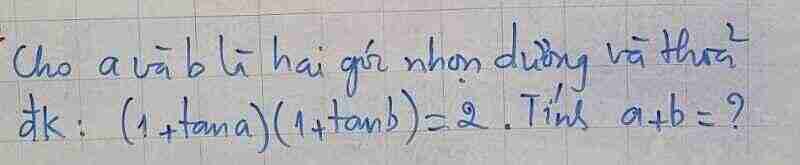 Cho a và b là hai góc nhọn dương và thoả
đk: (1+tana)(1+tanb)=2. Tính a+b=?